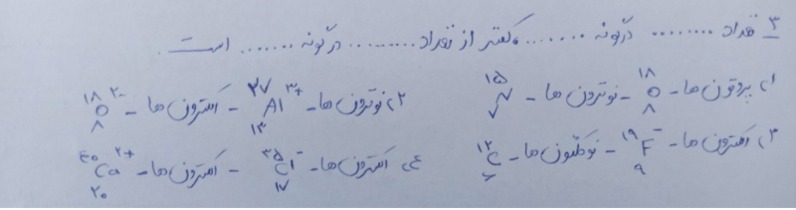 ۳ تعداد ........ درگونه ........ کمتر از تعداد ........ درگونه ........ است.
۱) پروتون ها - ¹⁸₈O - نوترون ها - ¹⁵₇N ۲) نوترون ها - ²⁷₁₃Al³⁺ - الکترون ها - ¹⁸₈O²⁻
۳) الکترون ها - ¹⁹₉F⁻ - نوکلئون ها - ¹²₆C ۴) الکترون ها - ³⁵₁₇Cl⁻ - الکترون ها - ⁴⁰₂₀Ca²⁺